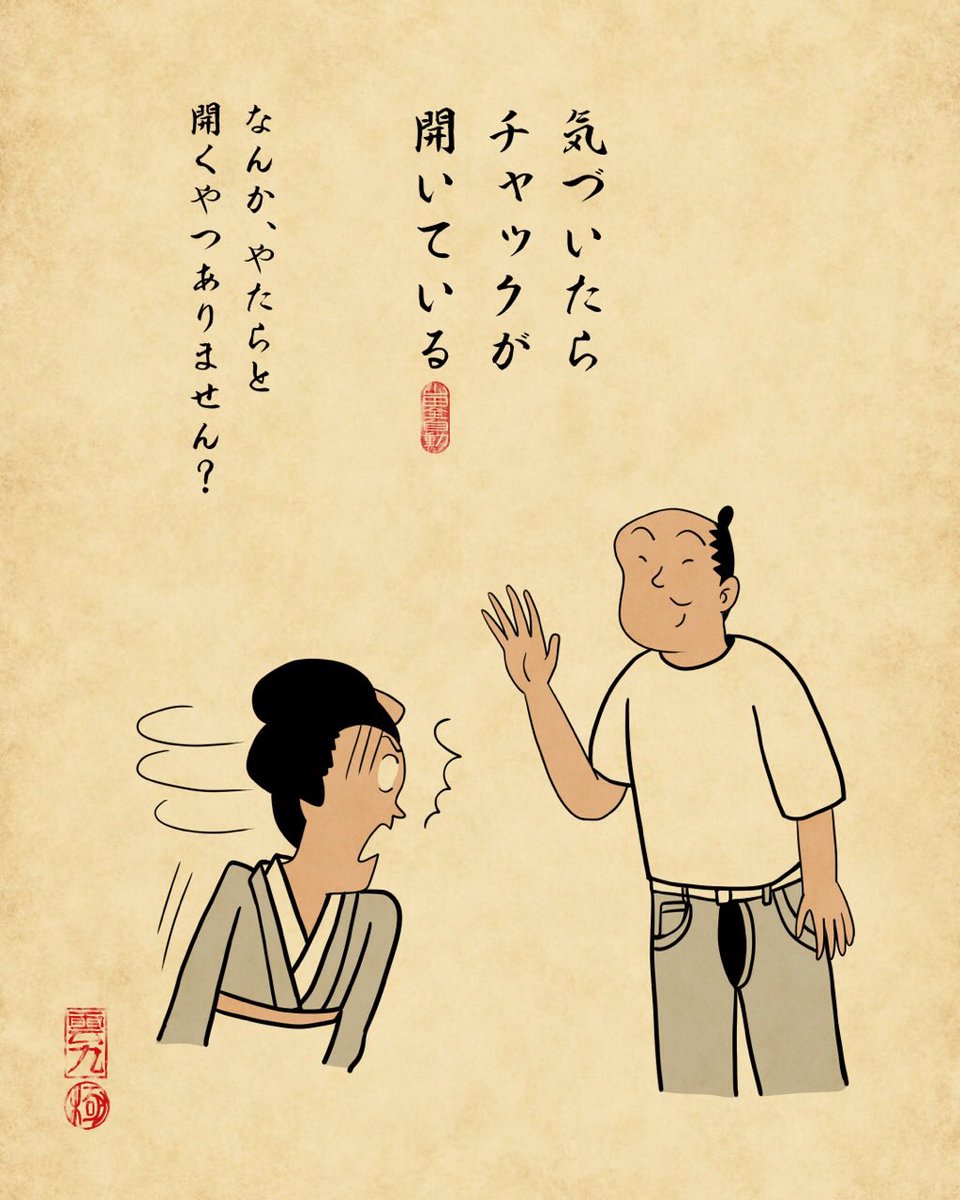 気づいたら
チャックが
開いている
なんか、やたらと
開くやつありません?